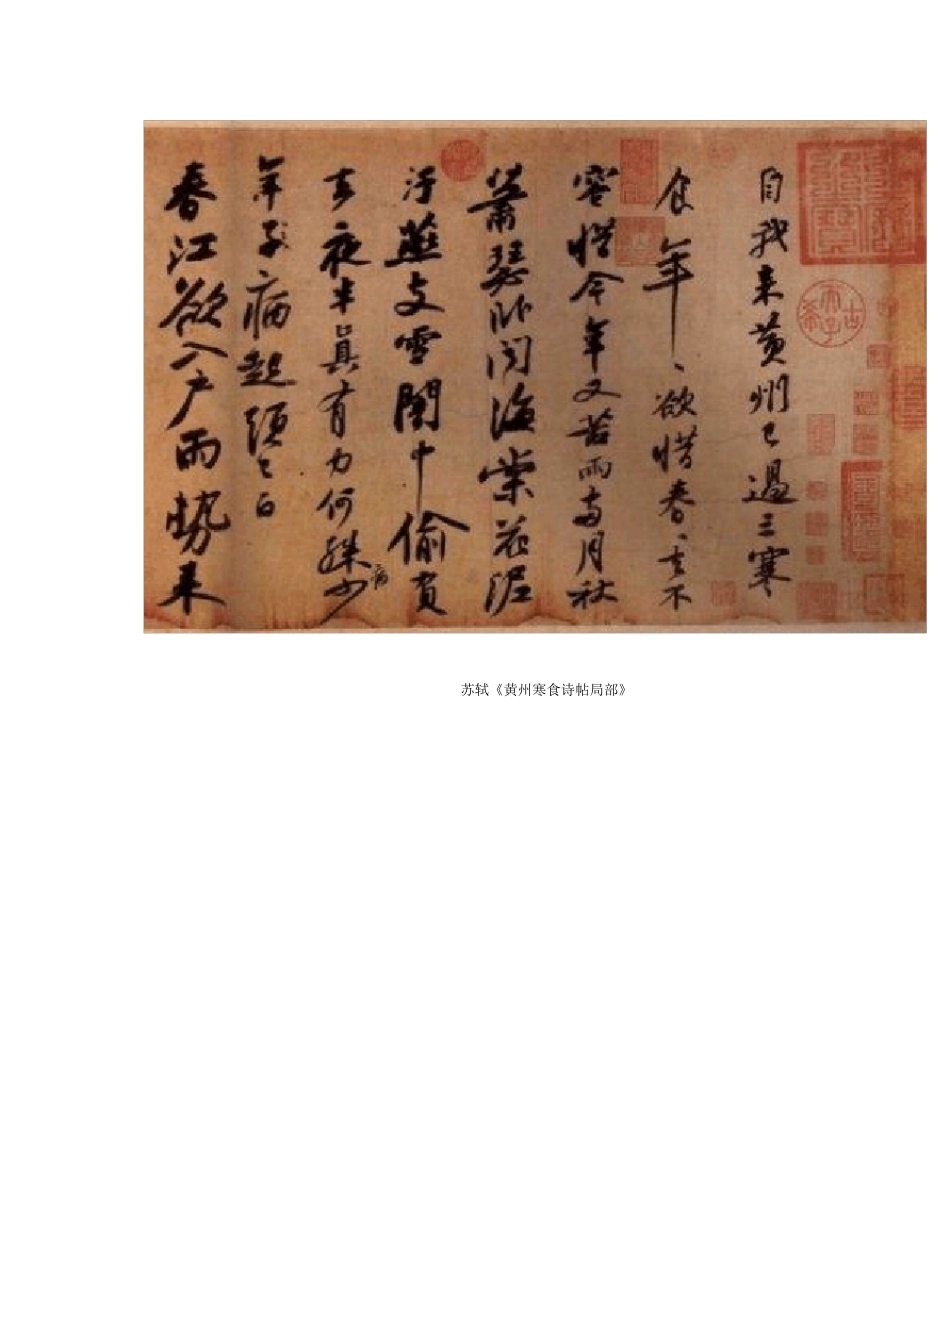 自我来黄州已過三寒
食年、欲惜春、去不
容惜今年又苦雨兩月秋
蕭瑟卧聞海棠花泥
汙燕支雪闇中偷負
去夜半真有力何殊少
病
年子病起頭已白
春江欲入户雨勢来
古希天子
苏轼《黄州寒食诗帖局部》